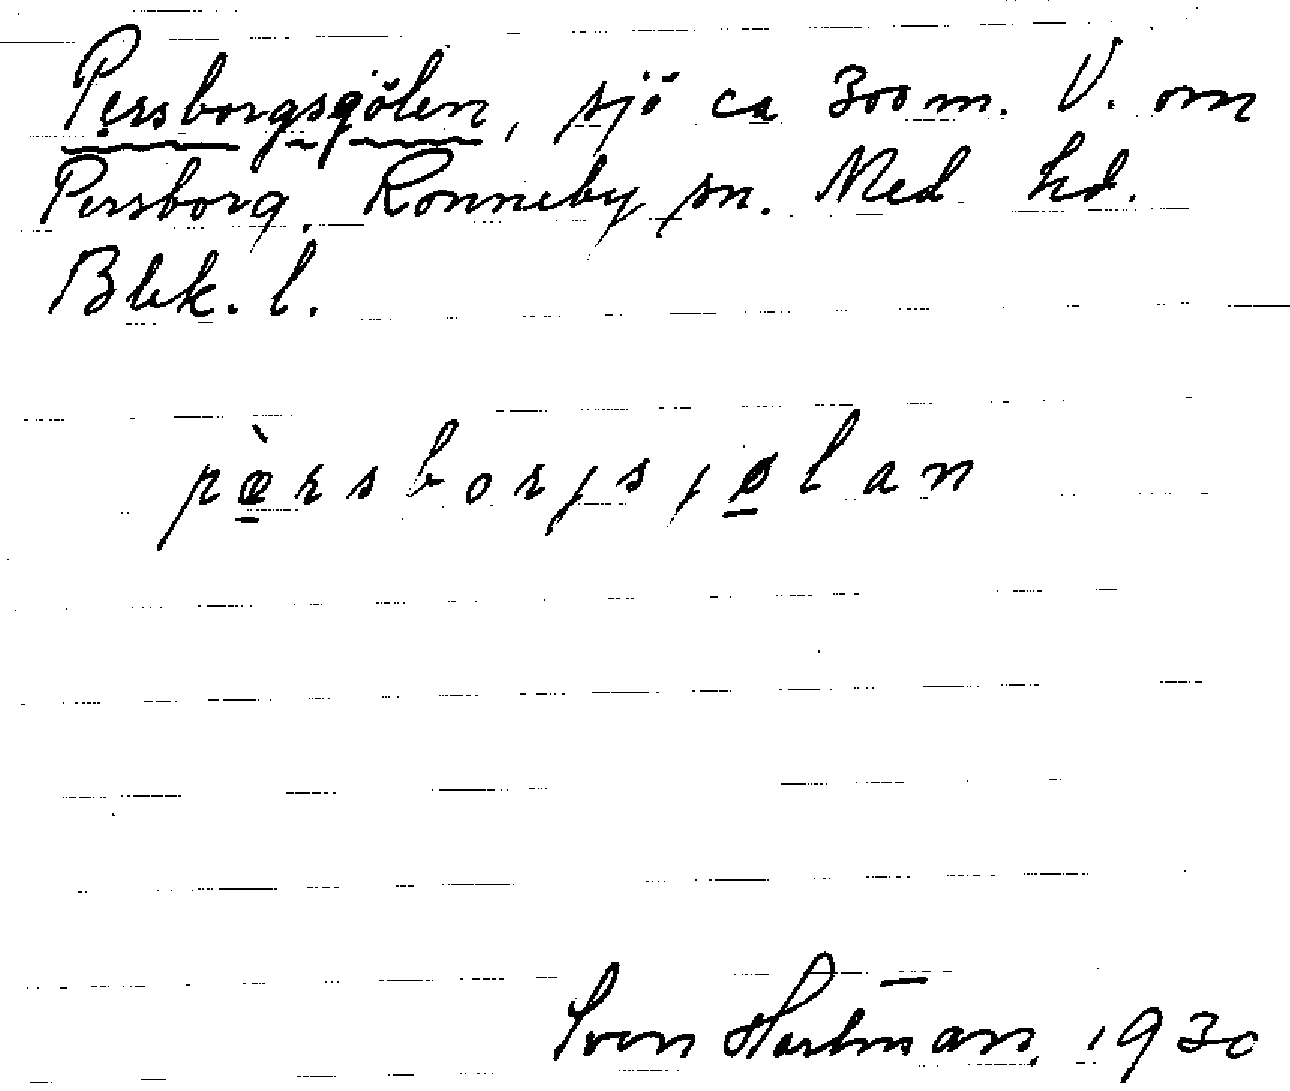 Persborgsgölen, sjö ca 300 m. V. om
Persborg. Ronneby sn. Med hd.
Blek. l.
pæ̀rsborjsjølan
Sven Hartman. 1930